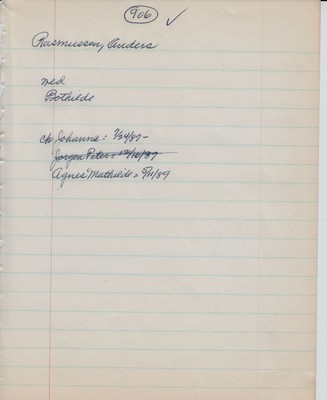 906 ✓
Rasmussen, Anders
med
Bothilde
ch Johanne: 7/24/87-
Jorgen Peter: 12/16/87
Agnes Mathilde = 9/11/89